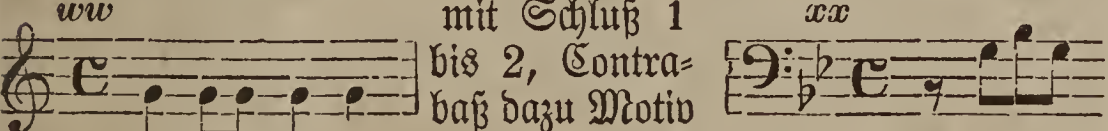 ww mit Schluß 1 xx
bis 2, Contra=
baß dazu Motiv